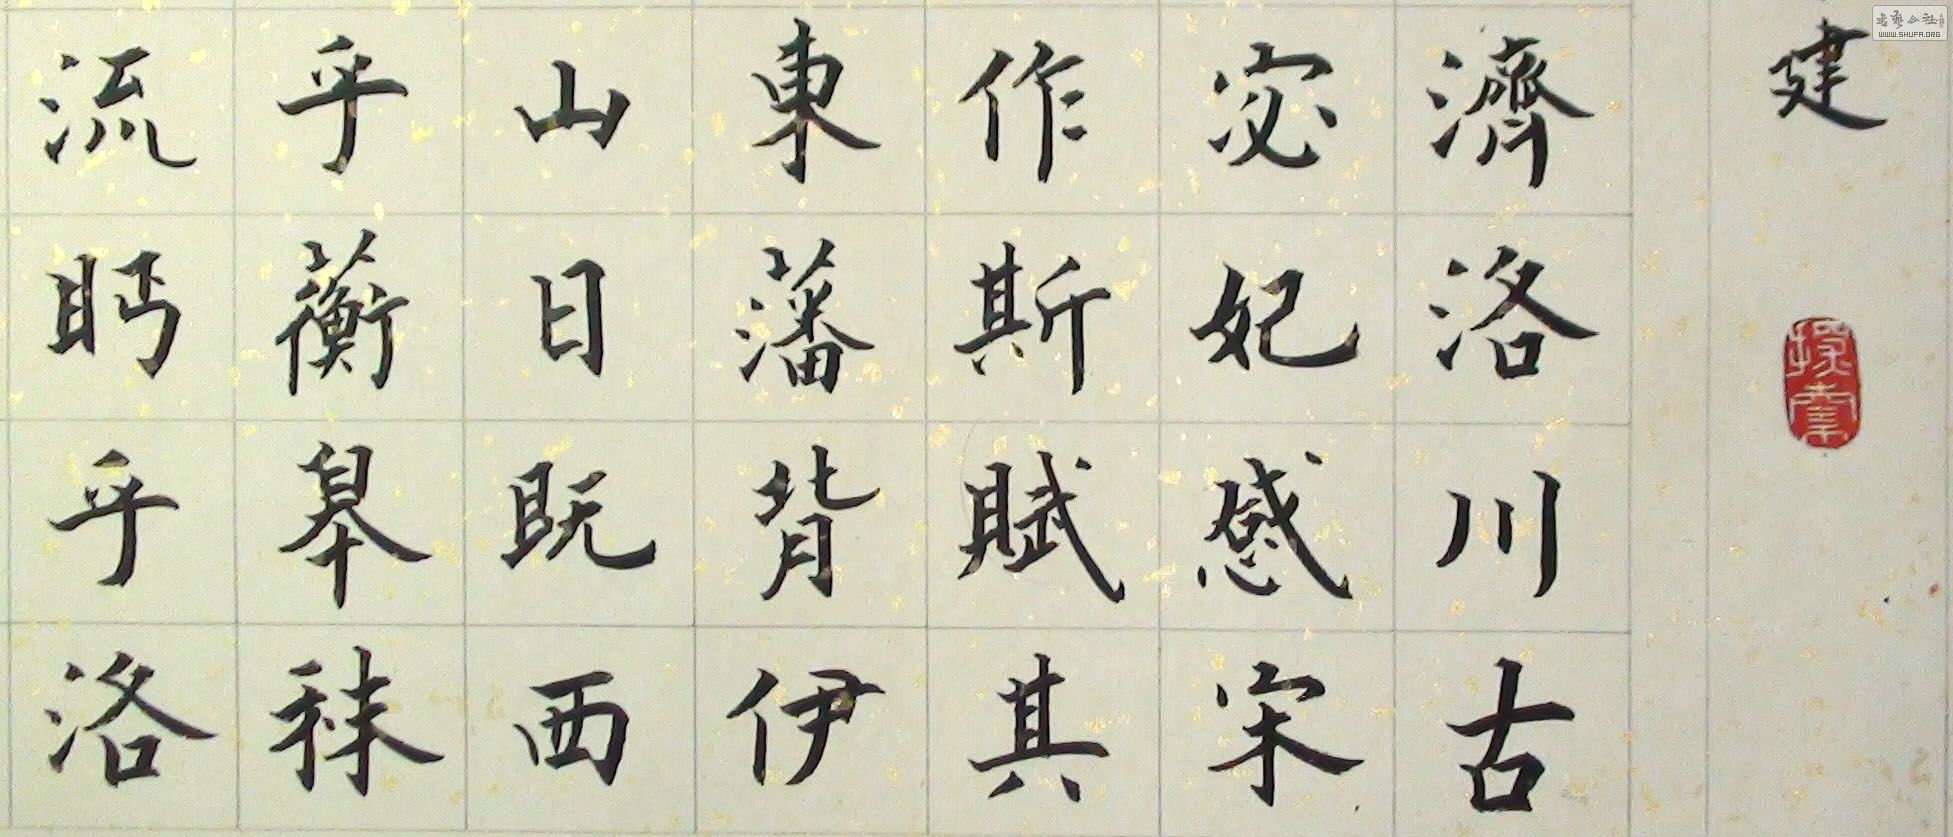 建
濟洛川古
宓妃感宋
作斯賦其
東藩背伊
山日既西
乎蘅皋秣
流眄乎洛
WWW.SHUFA.ORG